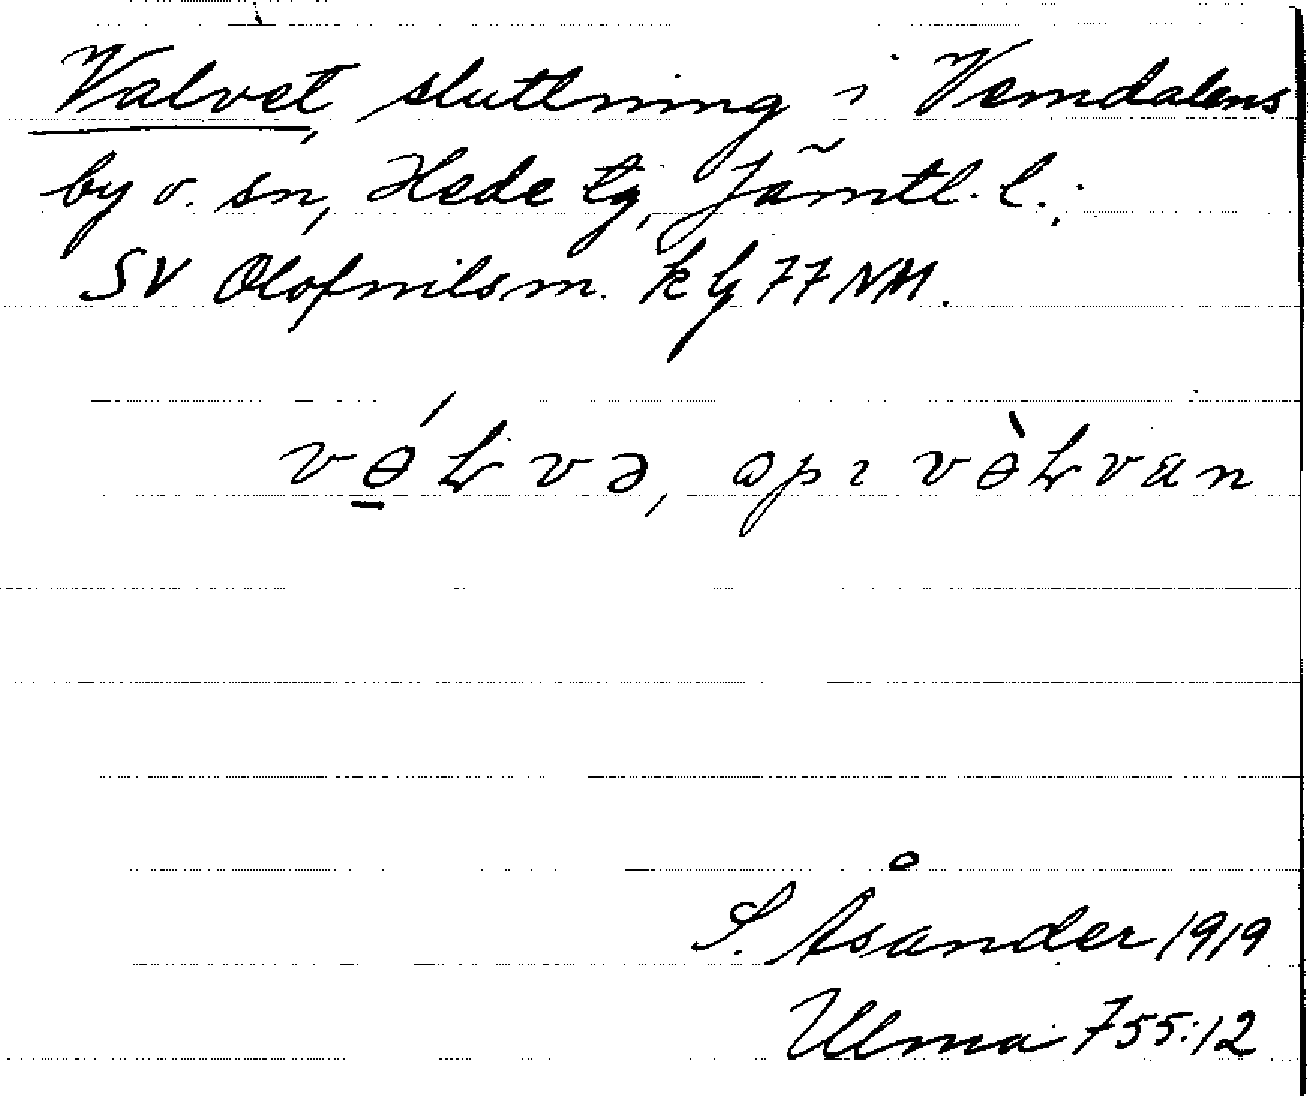 Valvet, sluttning i Vemdalens
by o. sn, Hede tg, Jämtl. l.;
SV Olofnilsm. k bl 77 NM.
və́ Ƚvə, op ı vəȽvan
S. Åsander 1919
Ulma 755:12